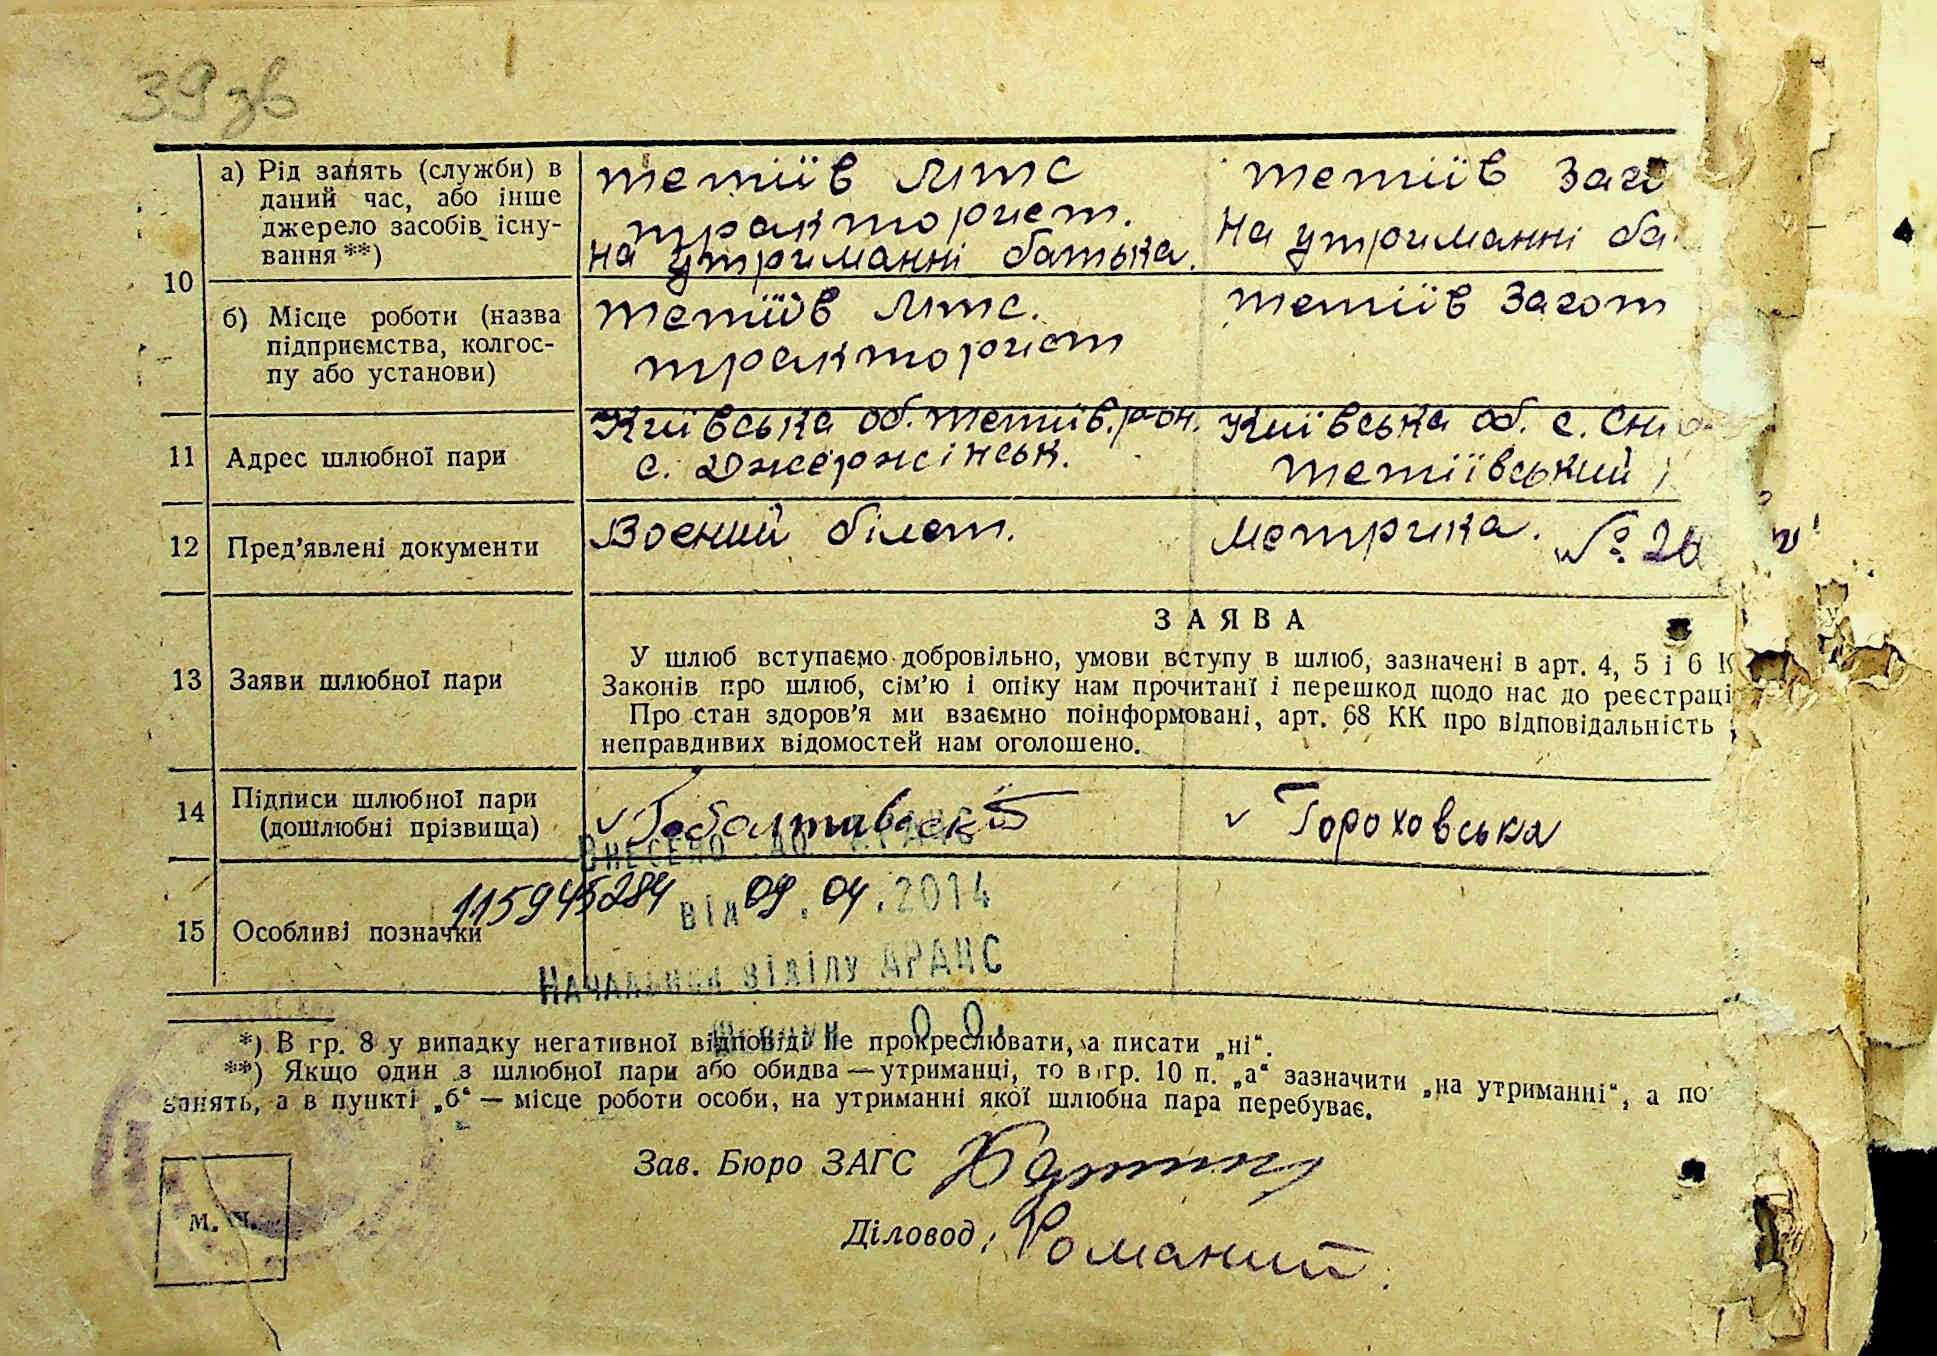 39 зв
10
а) Рід занять (служби) в
даний час, або інше
джерело засобів існу-
вання **)
Тетіїв Мтс
тракторист.
На утриманні батька.
Тетіїв Заг
На утриманні ба
б) Місце роботи (назва
підприємства, колгос-
пу або установи)
Тетіїв Мтс.
тракторист
Тетіїв Загот
11 Адрес шлюбної пари
Київська об. Тетіїв. р-он.
с. Джержінськ.
Київська об. с.
Тетіївський
12 Пред'явлені документи
Воєний білет.
Метрика. №
13 Заяви шлюбної пари
ЗАЯВА
У шлюб вступаємо добровільно, умови вступу в шлюб, зазначені в арт. 4, 5 і 6 К
Законів про шлюб, сім'ю і опіку нам прочитані і перешкод щодо нас до реєстраці
Про стан здоров'я ми взаємно поінформовані, арт. 68 КК про відповідальність
неправдивих відомостей нам оголошено.
14 Підписи шлюбної пари
(дошлюбні прізвища)
Гороховська
Внесено до ДРАЦС
115945284 від 09.04.2014
15 Особливі позначки
Начальник відділу ДРАЦС
*) В гр. 8 у випадку негативної відповіді не прокреслювати, а писати „ні“.
**) Якщо один з шлюбної пари або обидва — утриманці, то в гр. 10 п. „а“ зазначити „на утриманні“, а по
занять, а в пункті „б“ — місце роботи особи, на утриманні якої шлюбна пара перебуває.
Зав. Бюро ЗАГС
Діловод Романий
М. П.